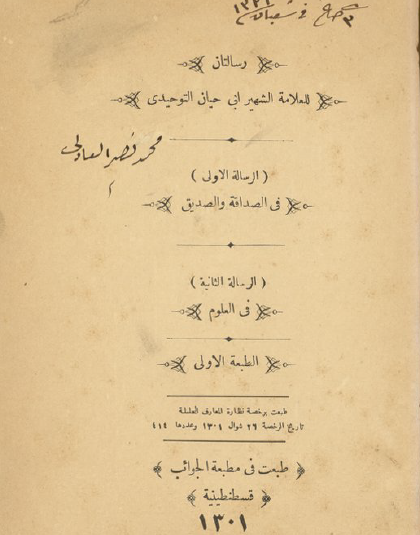 في شعبان ١٣٢٢
رسالتان
للعلامة الشهير ابي حيان التوحيدى
محمد نصر العادلي
( الرسالة الاولى )
فى الصداقة والصديق
( الرسالة الثانية )
فى العلوم
الطبعة الاولى
طبعت برخصة نظارة المعارف الجليلة
تاريخ الرخصة ٢٦ شوال ١٣٠١ وعددها ٤١٤
طبعت فى مطبعة الجوائب
قسطنطينية
١٣٠١